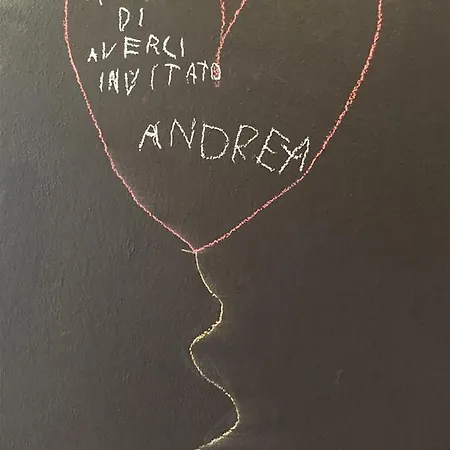 DI
AVERCI
INVITATO
ANDREA